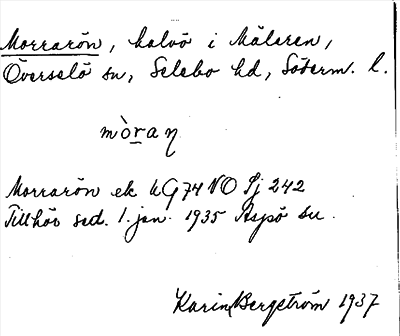 Morrarön, halvö i Mälaren,
Överselö sn, Selebo hd, Söderm. l.
mòraŋ
Morrarön ek UG74 NO Sj 242
Tillhör sed. 1. jan. 1935 Aspö sn.
Karin Bergström 1937